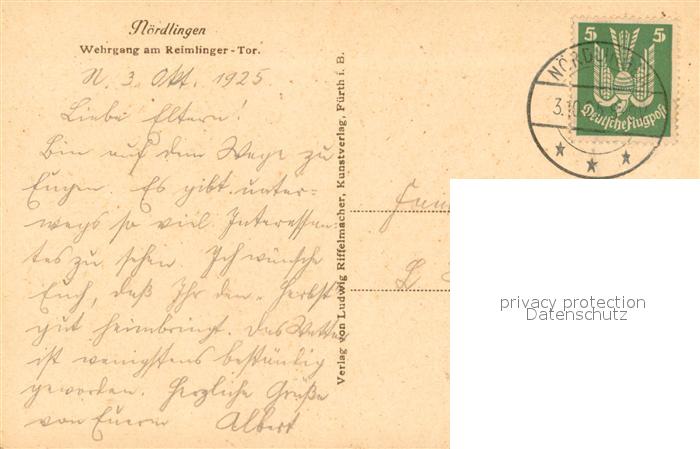 Nördlingen
Wehrgang am Reimlinger-Tor.
N. 3. Okt. 1925
Liebe Eltern!
Bin auf dem Wege zu
Eugen. Es gibt unter=
wegs so viel Interessan=
tes zu sehen. Ich wünsche
Euch, daß Ihr den Herbst
gut heimbringt. Das Wetter
ist wenigstens beständig
geworden. Herzliche Grüße
von Euerm Albert
Verlag von Ludwig Riffelmacher, Kunstverlag, Fürth i. B.
5 5
Deutsche Flugpost
NÖRDLINGEN
3.10
Fam
privacy protection
Datenschutz